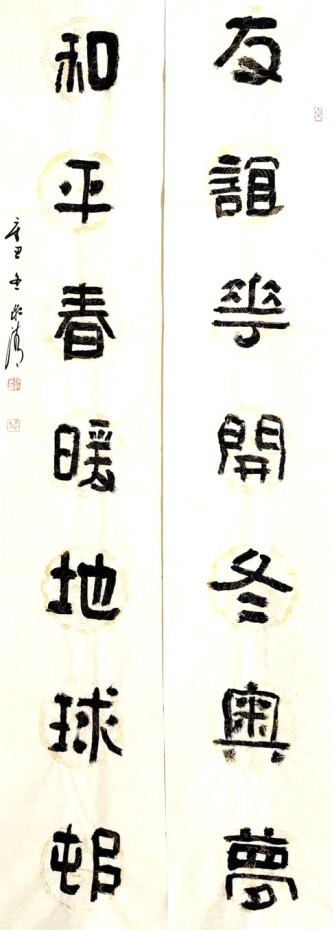 友誼花開冬奧夢
和平春暖地球邨
辛丑冬